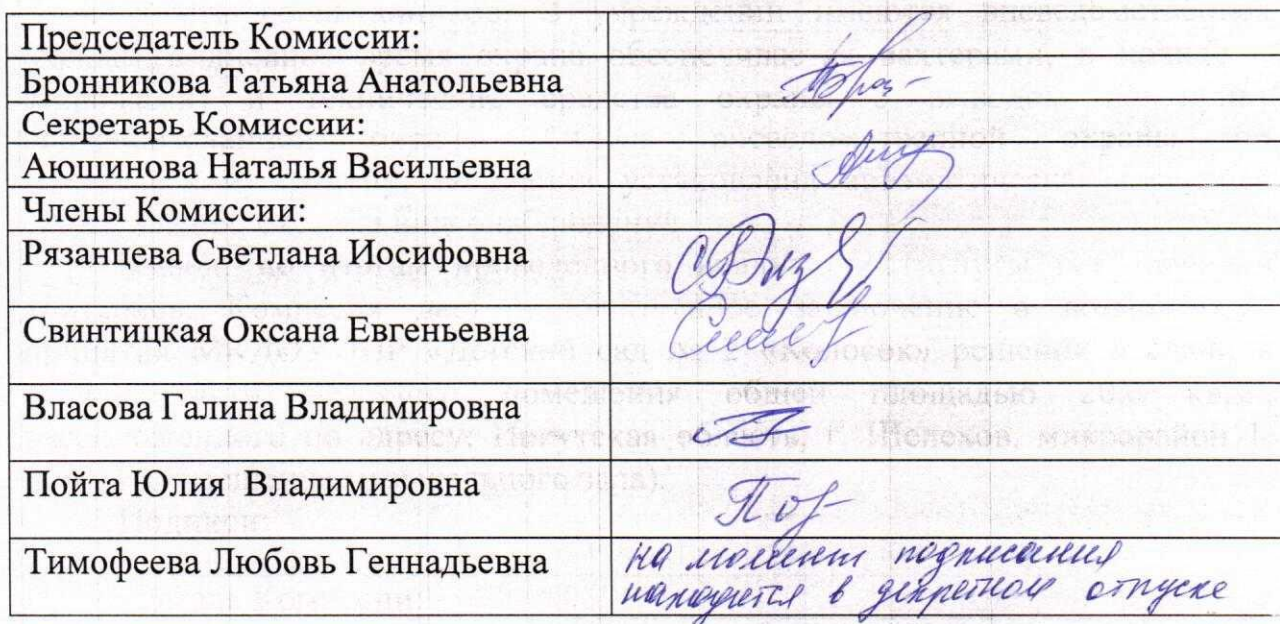 Председатель Комиссии:
Бронникова Татьяна Анатольевна
Секретарь Комиссии:
Аюшинова Наталья Васильевна
Члены Комиссии:
Рязанцева Светлана Иосифовна
Свинтицкая Оксана Евгеньевна
Власова Галина Владимировна
Пойта Юлия Владимировна
Тимофеева Любовь Геннадьевна
на момент подписания
находится в декретном отпуске